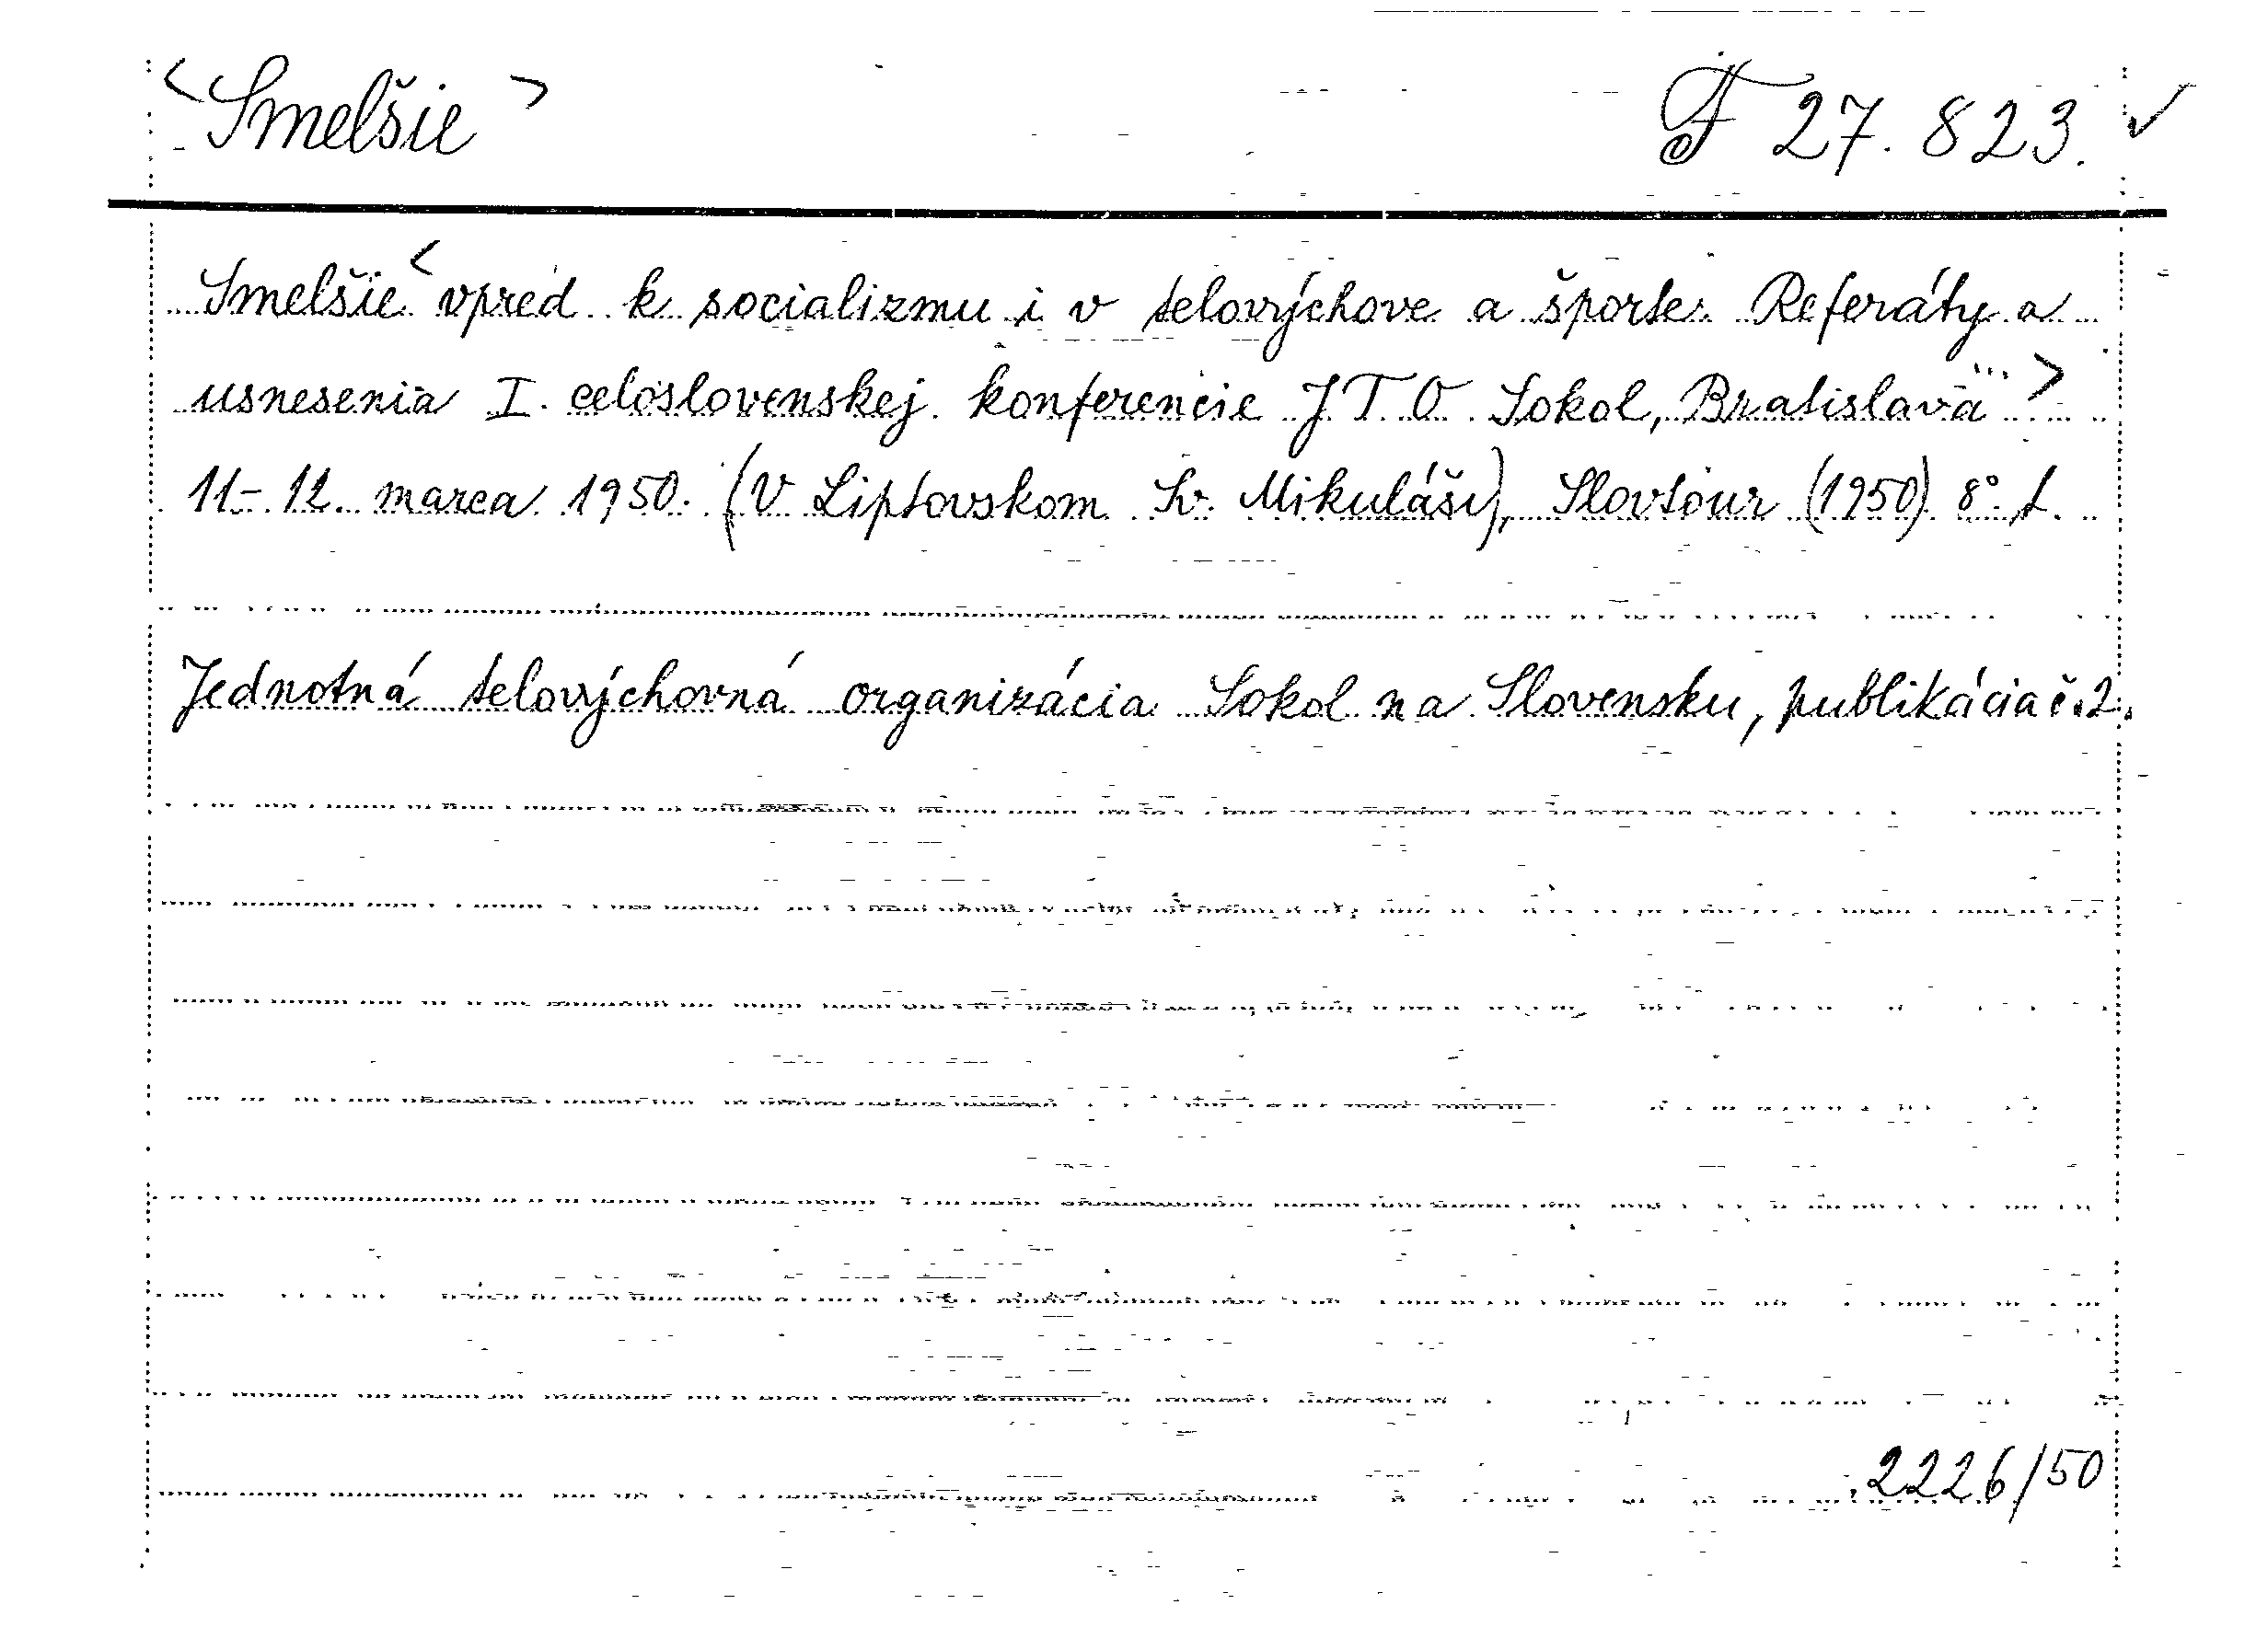 < Smelšie > F 27.823. ✓
Smelšie < vpred k socializmu i v telovýchove a športe. Referáty a
usnesenia I. celoslovenskej konferencie J T O Sokol, Bratislava ... >
11-12. marca 1950. (V Liptovskom Sv. Mikuláši), Slovtour (1950) 8°.
Jednotná telovýchovná organizácia Sokol na Slovensku, publikácia č. 2.
2226/50